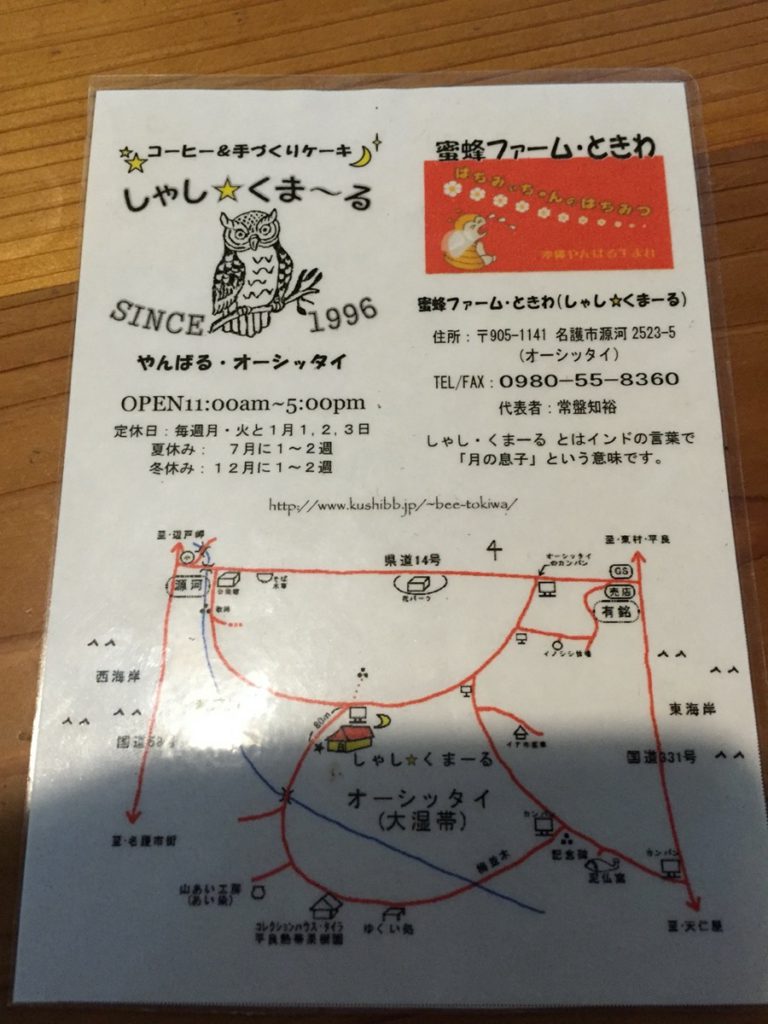 コーヒー＆手づくりケーキ
しゃし☆くま～る
SINCE 1996
やんばる・オーシッタイ
OPEN11:00am~5:00pm
定休日：毎週月・火と1月1,2,3日
夏休み：　7月に1～2週
冬休み：12月に1～2週
蜜蜂ファーム・ときわ
はちみつちゃんのはちみつ
蜜蜂ファーム・ときわ(しゃし☆くまーる)
住所：〒905-1141 名護市源河 2523-5
(オーシッタイ)
TEL/FAX：0980-55-8360
代表者：常盤知裕
しゃし・くまーる とはインドの言葉で
「月の息子」という意味です。
http://www.kushibb.jp/~bee-tokiwa/
至・辺戸岬
県道14号
4
オーシッタイ
のカンバン
至・東村・平良
小
源河
公民館
そば
花パーク
GS
売店
有銘
イノシシ牧場
西海岸
東海岸
80m
国道58号
国道331号
しゃし☆くまーる
オーシッタイ
(大湿帯)
カンバン
記念碑
カンバン
至・名護市街
山あい工房
(あい染)
コレクションハウス・タイラ
平良熱帯果樹園
ゆくい処
至・天仁屋